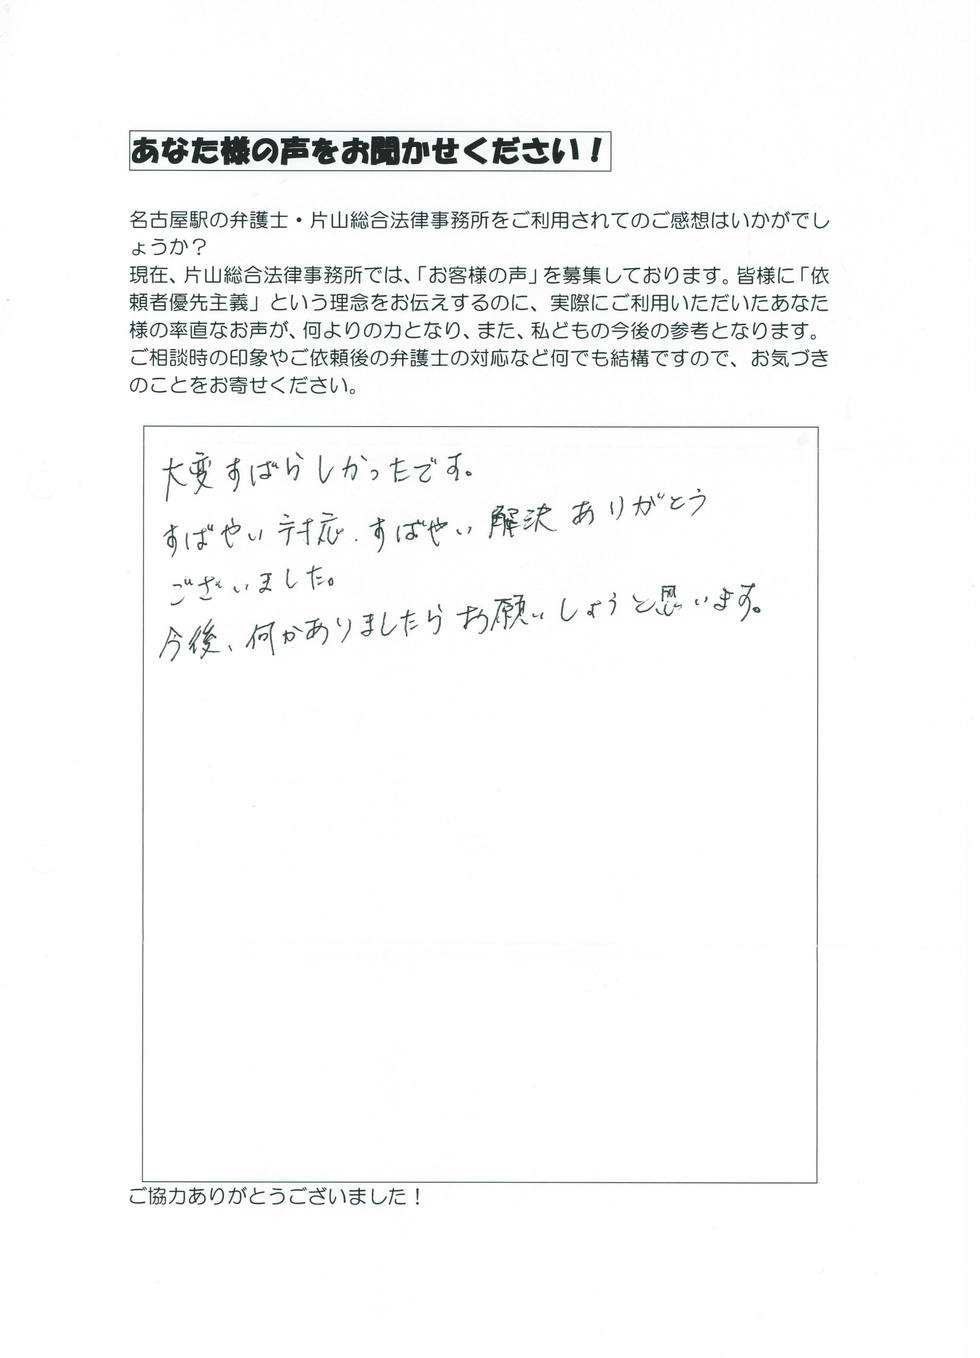 あなた様の声をお聞かせください！
名古屋駅の弁護士・片山総合法律事務所をご利用されてのご感想はいかがでし
ょうか？
現在、片山総合法律事務所では、「お客様の声」を募集しております。皆様に「依
頼者優先主義」という理念をお伝えするのに、実際にご利用いただいたあなた
様の率直なお声が、何よりの力となり、また、私どもの今後の参考となります。
ご相談時の印象やご依頼後の弁護士の対応など何でも結構ですので、お気づき
のことをお寄せください。
大変すばらしかったです。
すばやい対応、すばやい解決ありがとう
ございました。
今後、何かありましたらお願いしようと思います。
ご協力ありがとうございました！